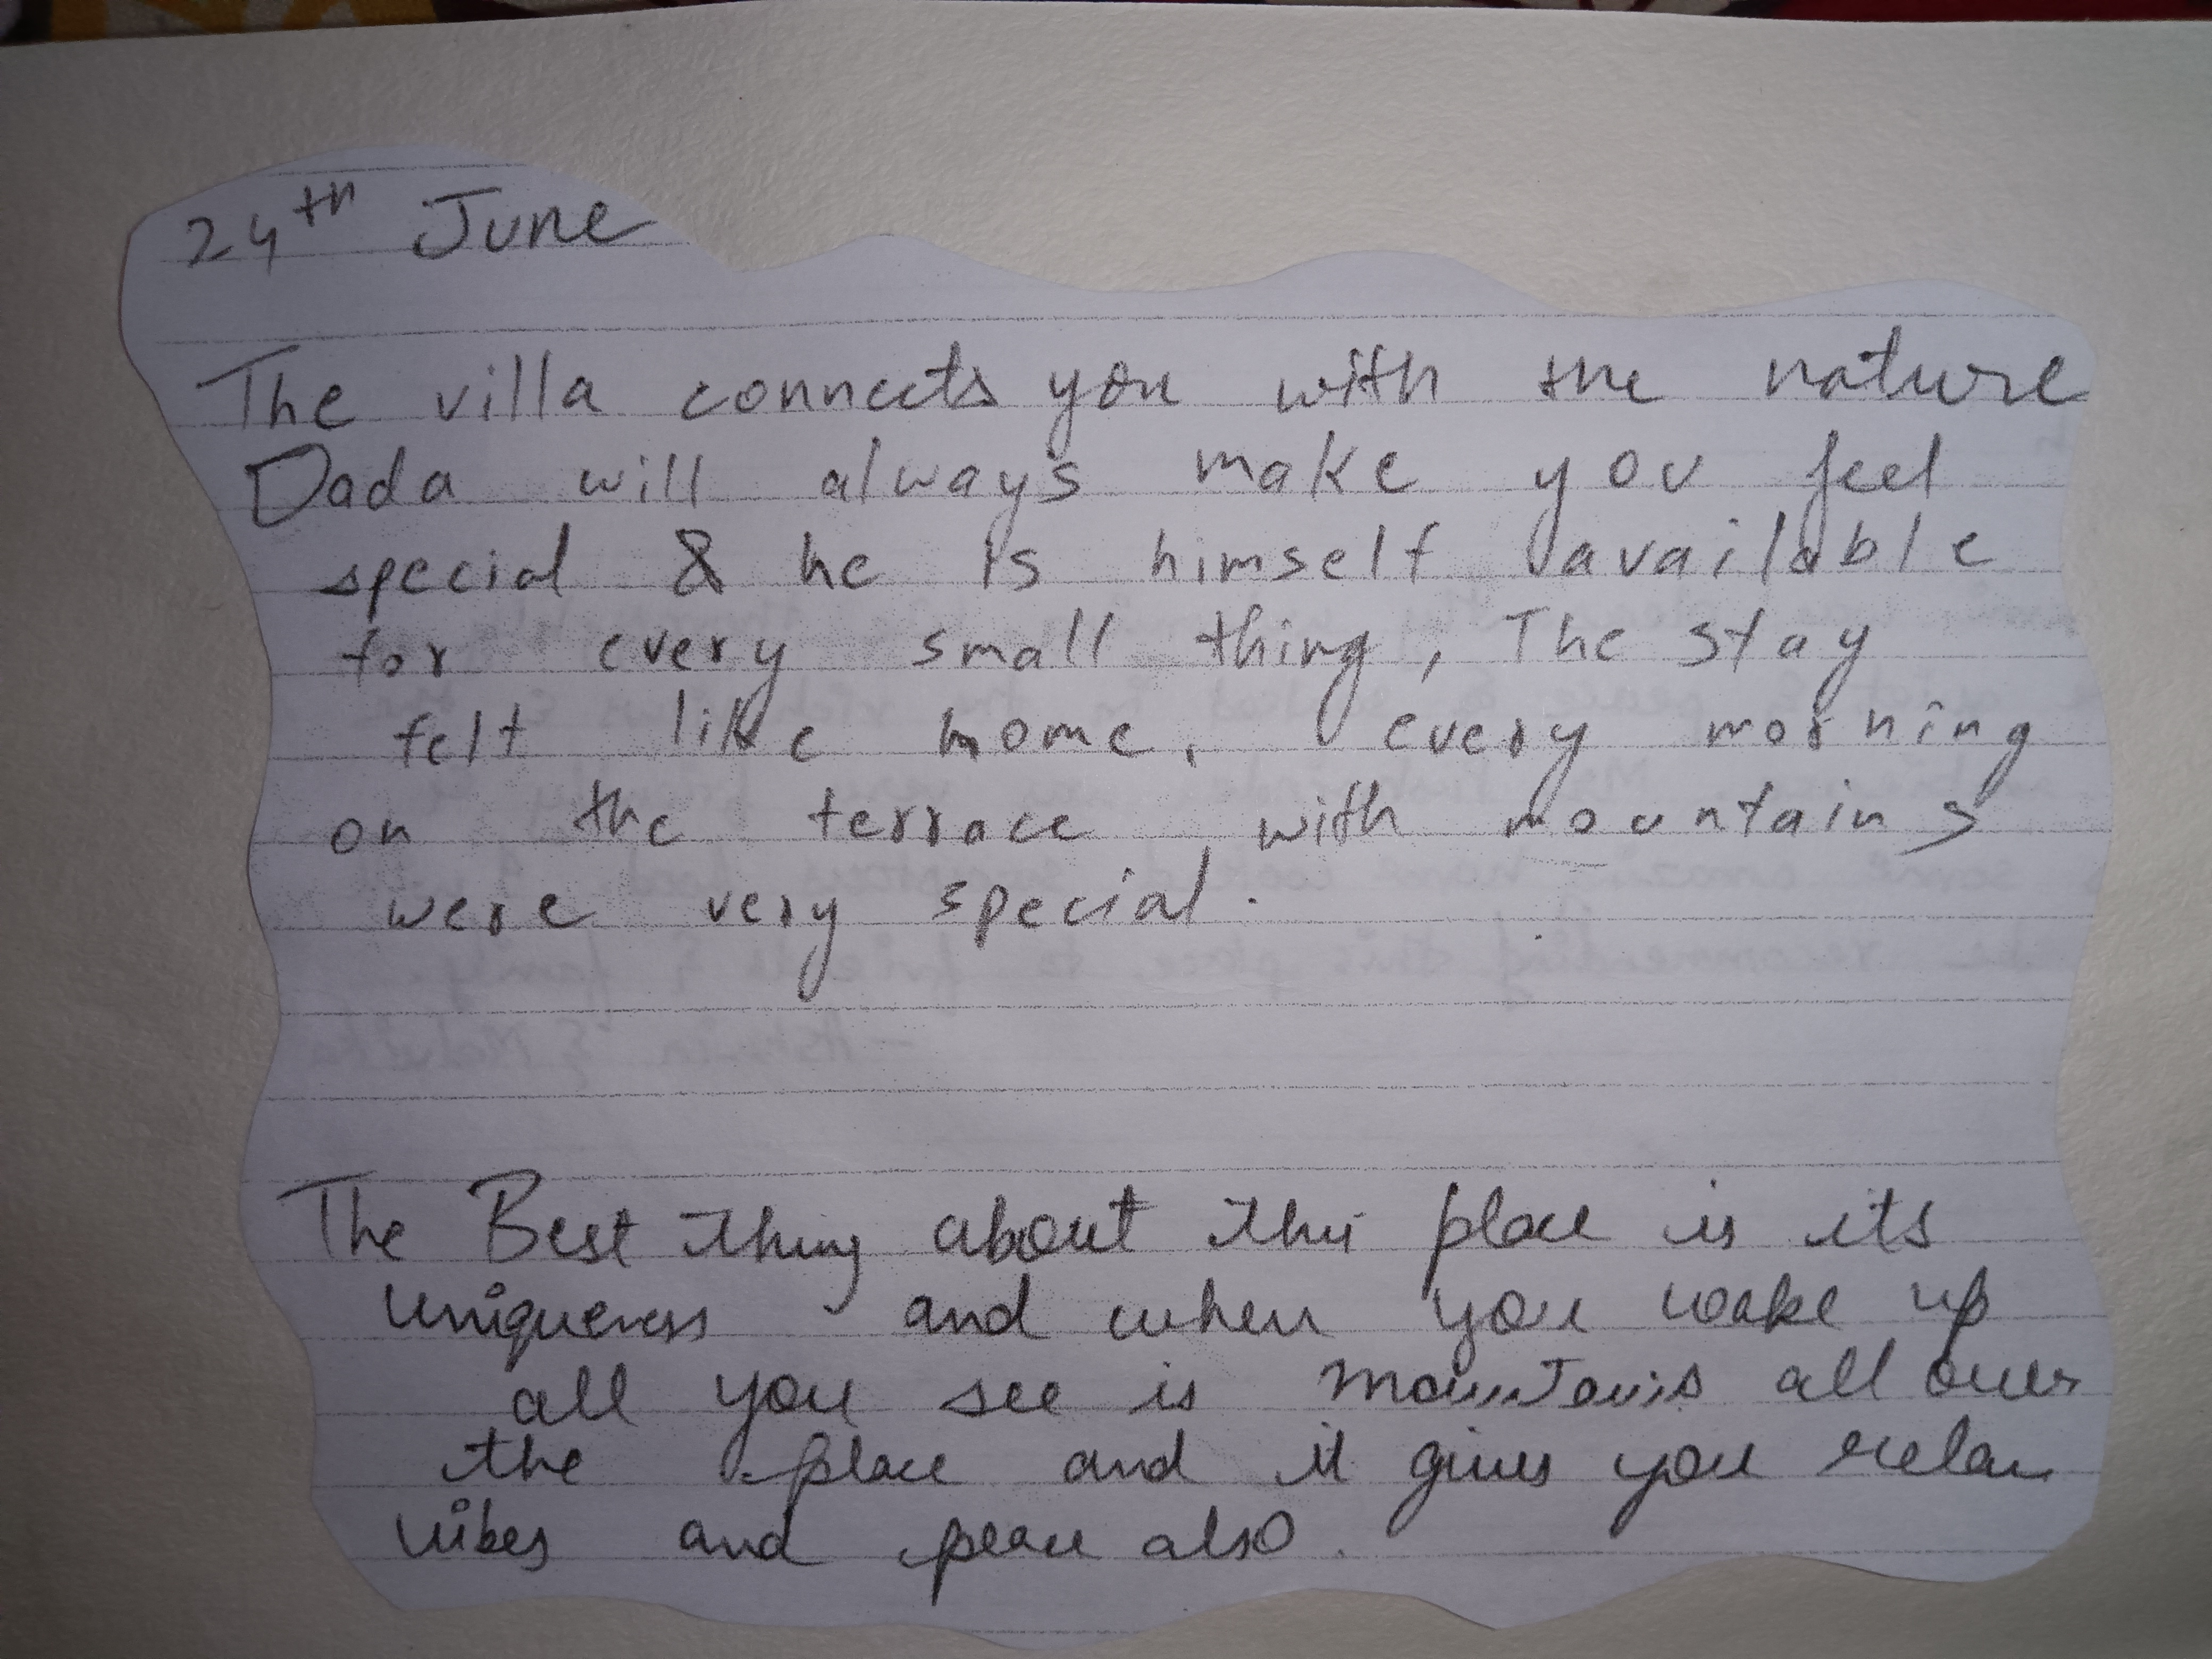 24th June
The villa connects you with the nature
Dada will always make you feel
special & he is himself available
for every small thing, The stay
felt like home, every morning
on the terrace with mountains
were very special.
The Best thing about this place is its
uniqueness and when you wake up
all you see is mountains all over
the place and it gives you relax
vibes and peace also.